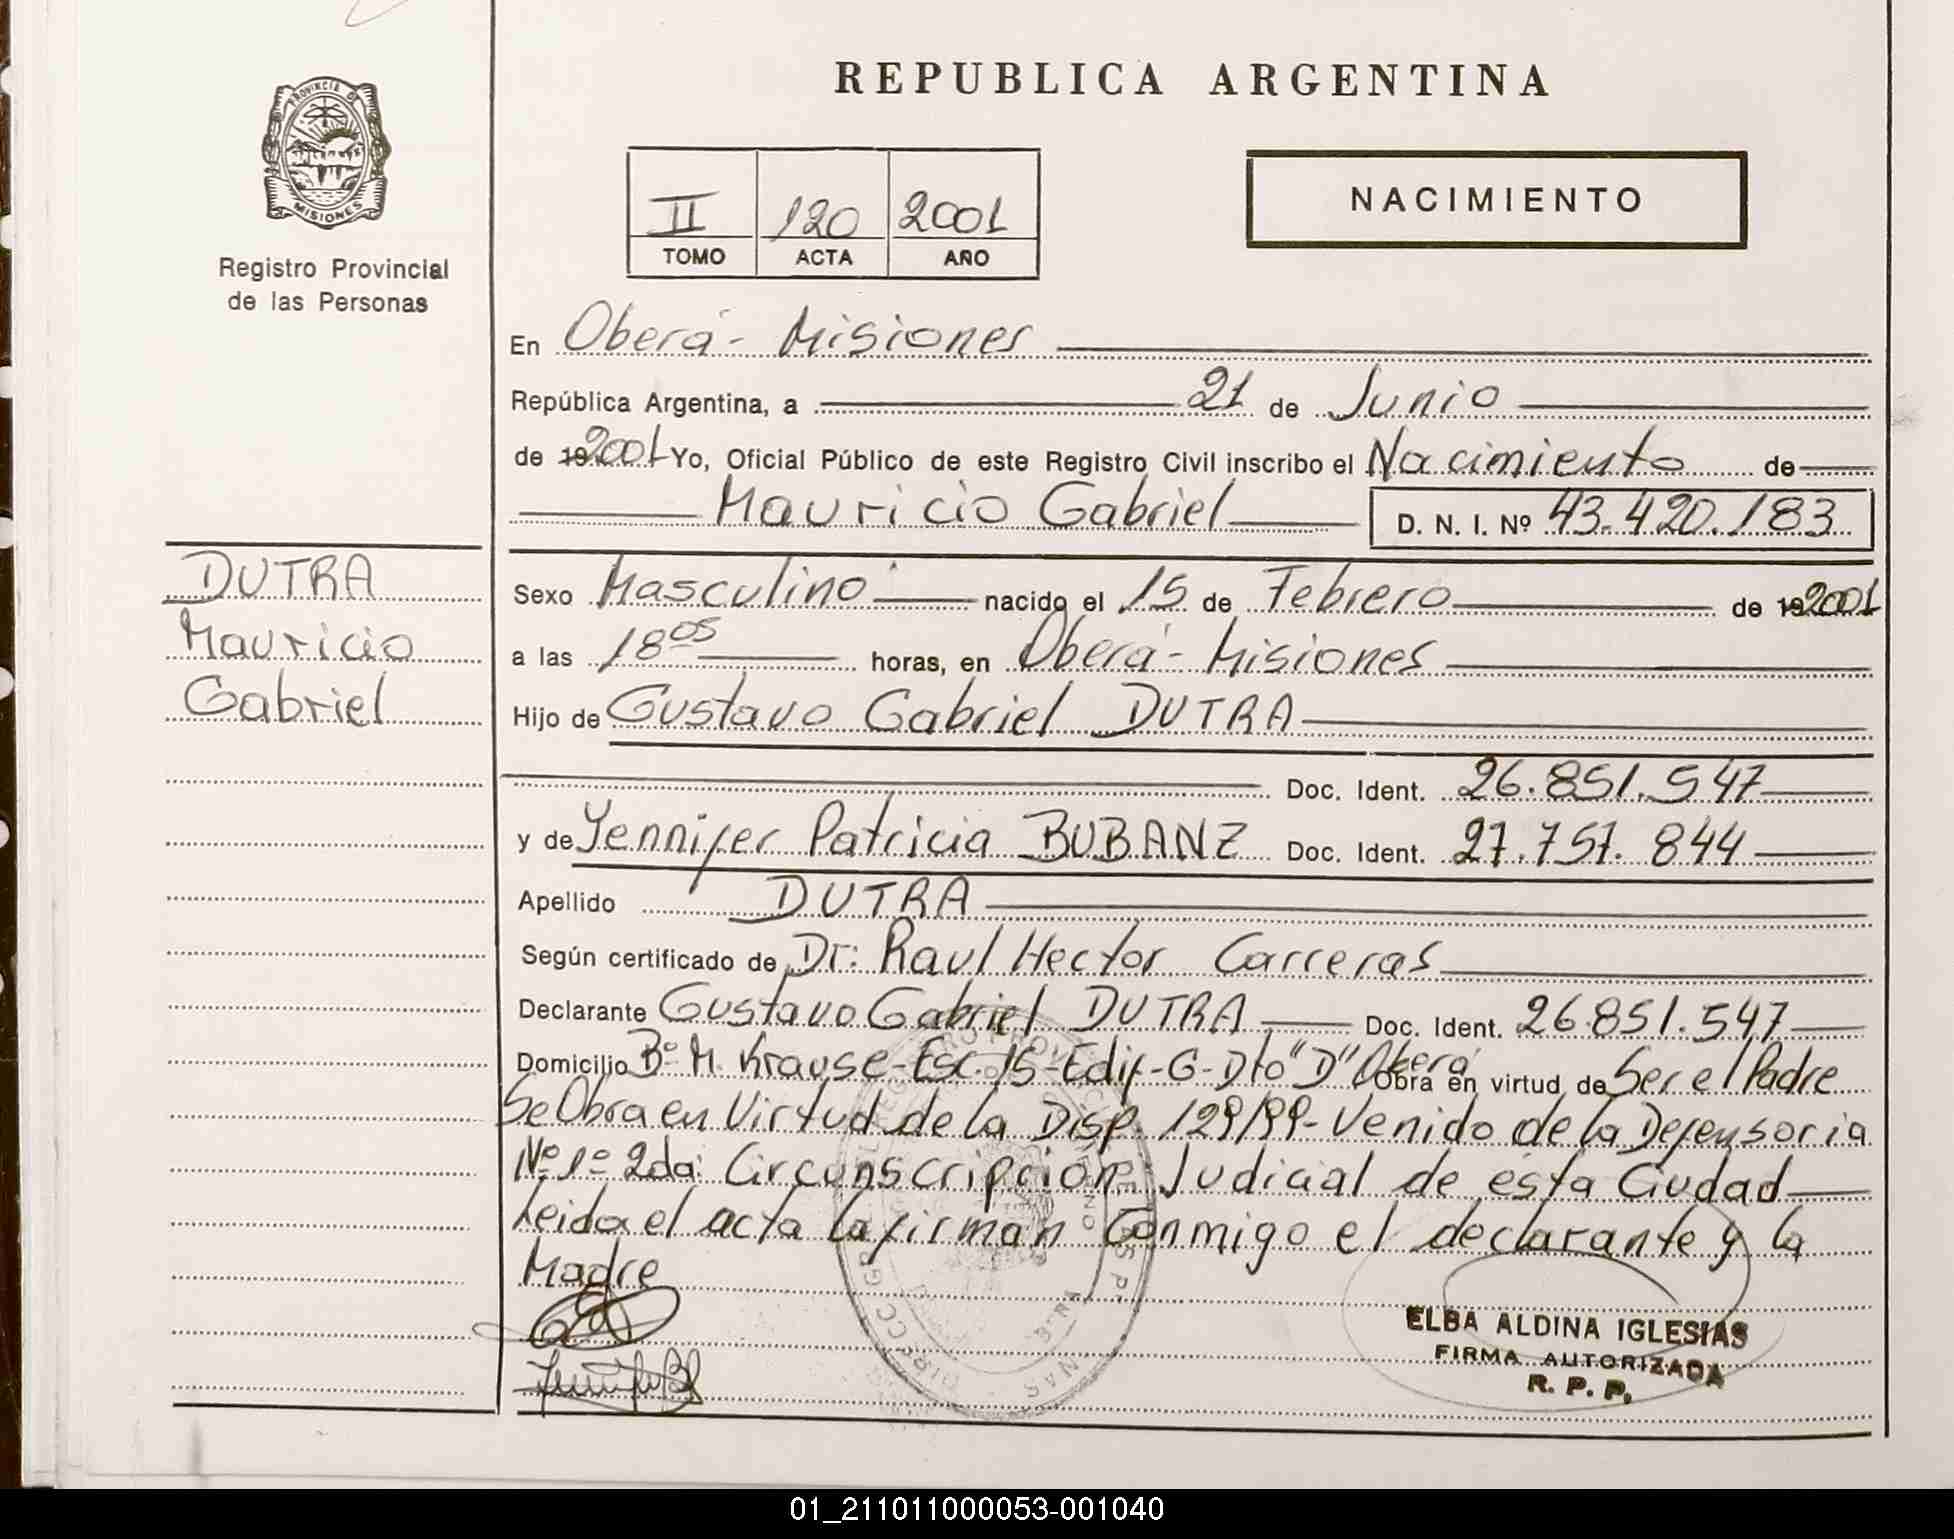 PROVINCIA DE
MISIONES
Registro Provincial
de las Personas
DUTRA
Mauricio
Gabriel
REPUBLICA ARGENTINA
II 120 2001
TOMO ACTA AÑO
NACIMIENTO
En Oberá - Misiones
República Argentina, a 21 de Junio
de 19 2001 Yo, Oficial Público de este Registro Civil inscribo el Nacimiento de
Mauricio Gabriel D. N. I. Nº 43.420.183
Sexo Masculino nacido el 15 de Febrero de 19 2001
a las 18 05 horas, en Oberá - Misiones
Hijo de Gustavo Gabriel DUTRA
Doc. Ident. 26.851.547
y de Yennifer Patricia BUBANZ Doc. Ident. 27.757.844
Apellido DUTRA
Según certificado de Dr: Raul Hector Carreras
Declarante Gustavo Gabriel DUTRA Doc. Ident. 26.851.547
Domicilio Bº M. Krause - Esc. 15 - Edif - G - Dto "D" Oberá Obra en virtud de Ser el Padre
Se Obra en Virtud de la Disp. 129/99 - Venido de la Defensoria
Nº 1º 2da: Circunscripcion Judicial de esta Ciudad
Leida el acta la firman Conmigo el declarante y la
Madre
ELBA ALDINA IGLESIAS
FIRMA AUTORIZADA
R. P. P.
01_211011000053-001040